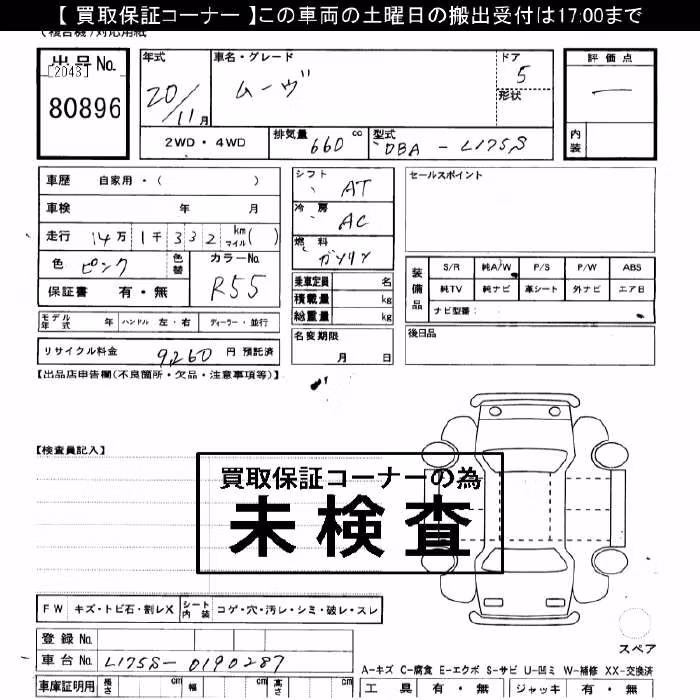 【 買取保証コーナー 】この車両の土曜日の搬出受付は17:00まで
(複合機)対応用紙
出品No. [2043] 80896
年式 20/11月
車名・グレード ムーヴ
ドア 5
形状
評価点 —
内装
2WD・4WD
排気量 660 cc
型式 DBA - L175S
車歴 自家用・( )
車検 年 月
走行 14万1千332 km マイル( )
色 ピンク 色替
カラーNo. R55
保証書 有・無
シフト AT
冷房 AC
燃料 ガソリン
乗車定員 名
積載量 kg
総重量 kg
セールスポイント
装備品
S/R 純A/W P/S P/W ABS
純TV 純ナビ 革シート 外ナビ エア日
ナビ型番:
モデル年式 年 ハンドル 左・右 ディーラー・並行
名変期限 月 日
後日品
リサイクル料金 9,260 円 預託済
【出品店申告欄(不良箇所・欠品・注意事項等)】
【検査員記入】
買取保証コーナーの為
未検査
FW キズ・トビ石・割レX シート内装 コゲ・穴・汚レ・シミ・破レ・スレ
登録No.
車台No. L175S-0190287
スペア
A-キズ C-腐食 E-エクボ S-サビ U-凹ミ W-補修 XX-交換済
車庫証明用 長さ cm 幅 cm 高さ cm
工具 有・無 ジャッキ 有・無